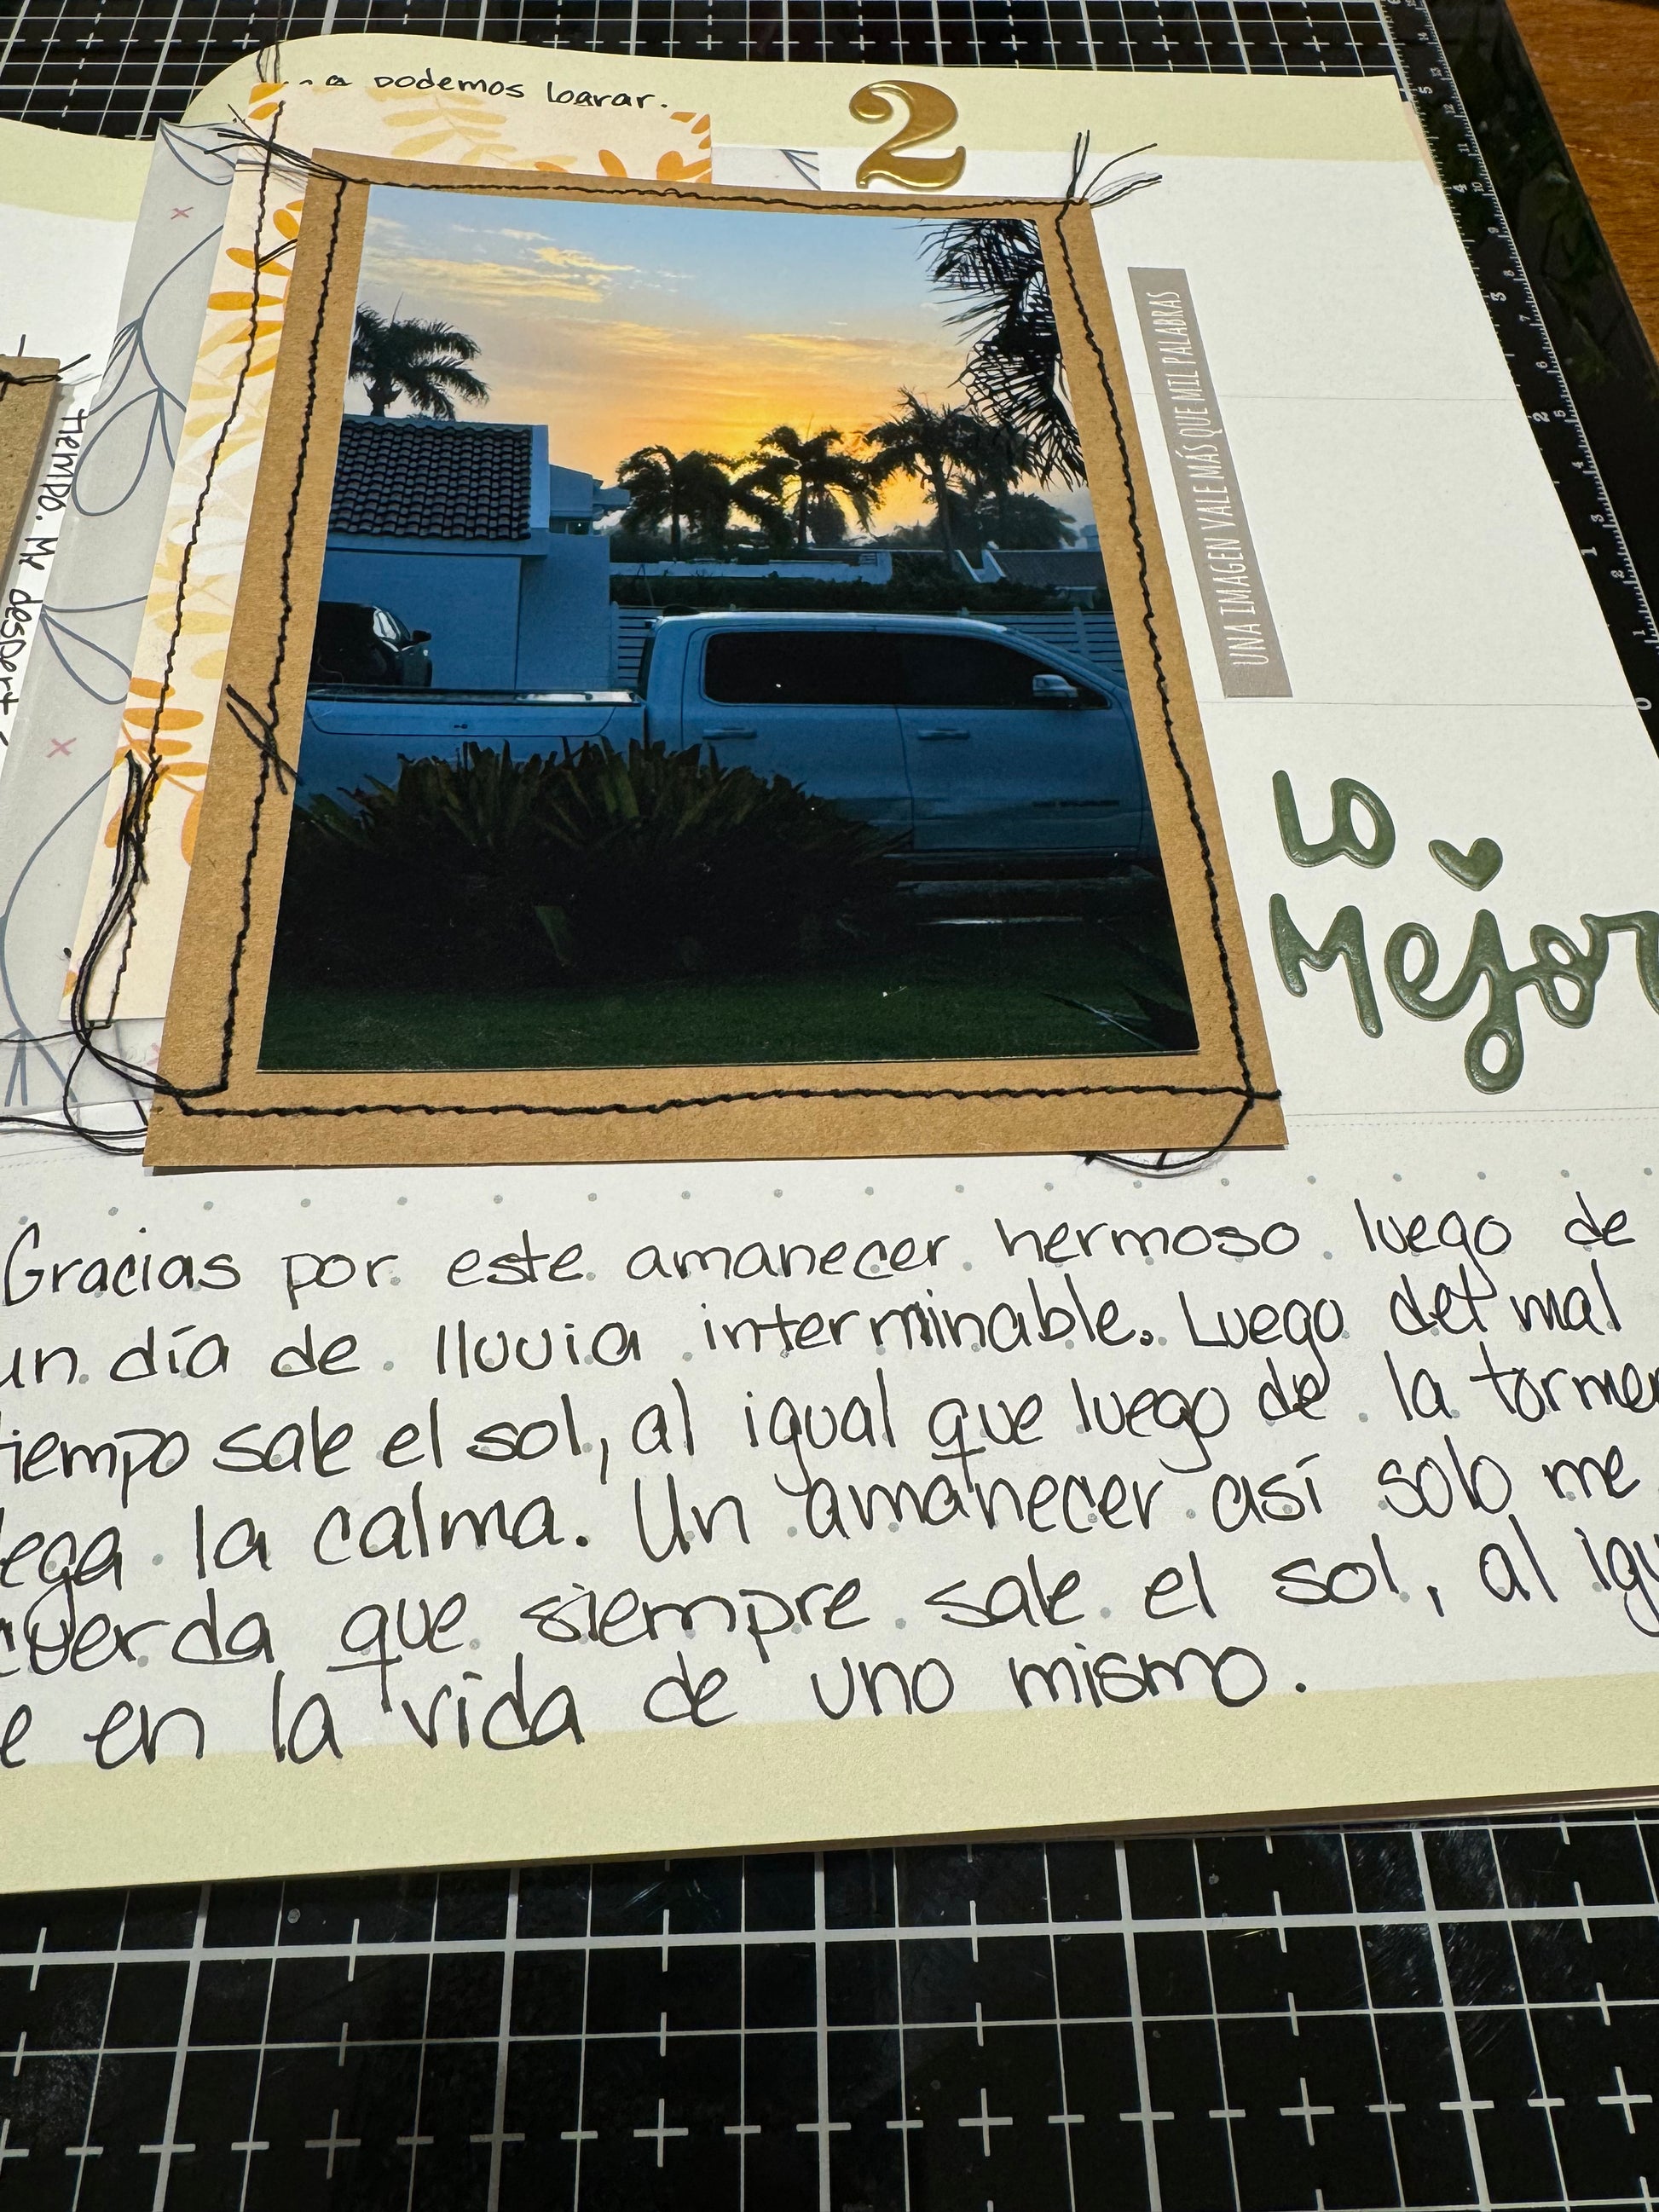 podemos loarar.
2
UNA IMAGEN VALE MÁS QUE MIL PALABRAS
tiempo. Mi
LO
Mejor
Gracias por este amanecer hermoso luego de
un día de lluvia interminable. Luego del mal
tiempo sale el sol, al igual que luego de la tormen
lega la calma. Un amanecer así solo me
cuerda que siempre sale el sol, al igu
e en la vida de uno mismo.